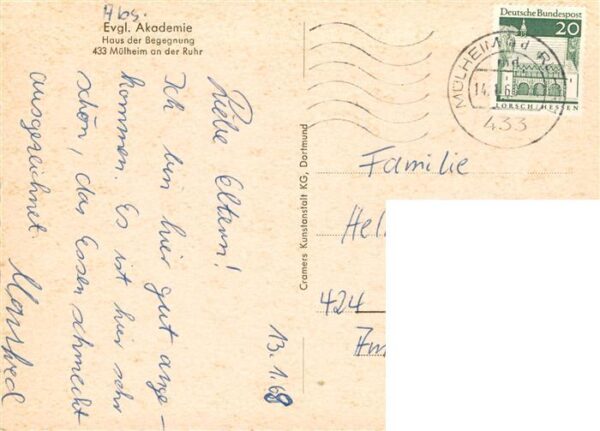 Evgl. Akademie
Haus der Begegnung
433 Mülheim an der Ruhr
13.1.68
Liebe Eltern!
Ich bin hier gut ange-
kommen. Es ist hier sehr
schön, das Essen schmeckt
ausgezeichnet
Manfred
Cramers Kunstanstalt KG, Dortmund
Deutsche Bundespost
20
LORSCH/HESSEN
MÜLHEIM
433
Familie
424